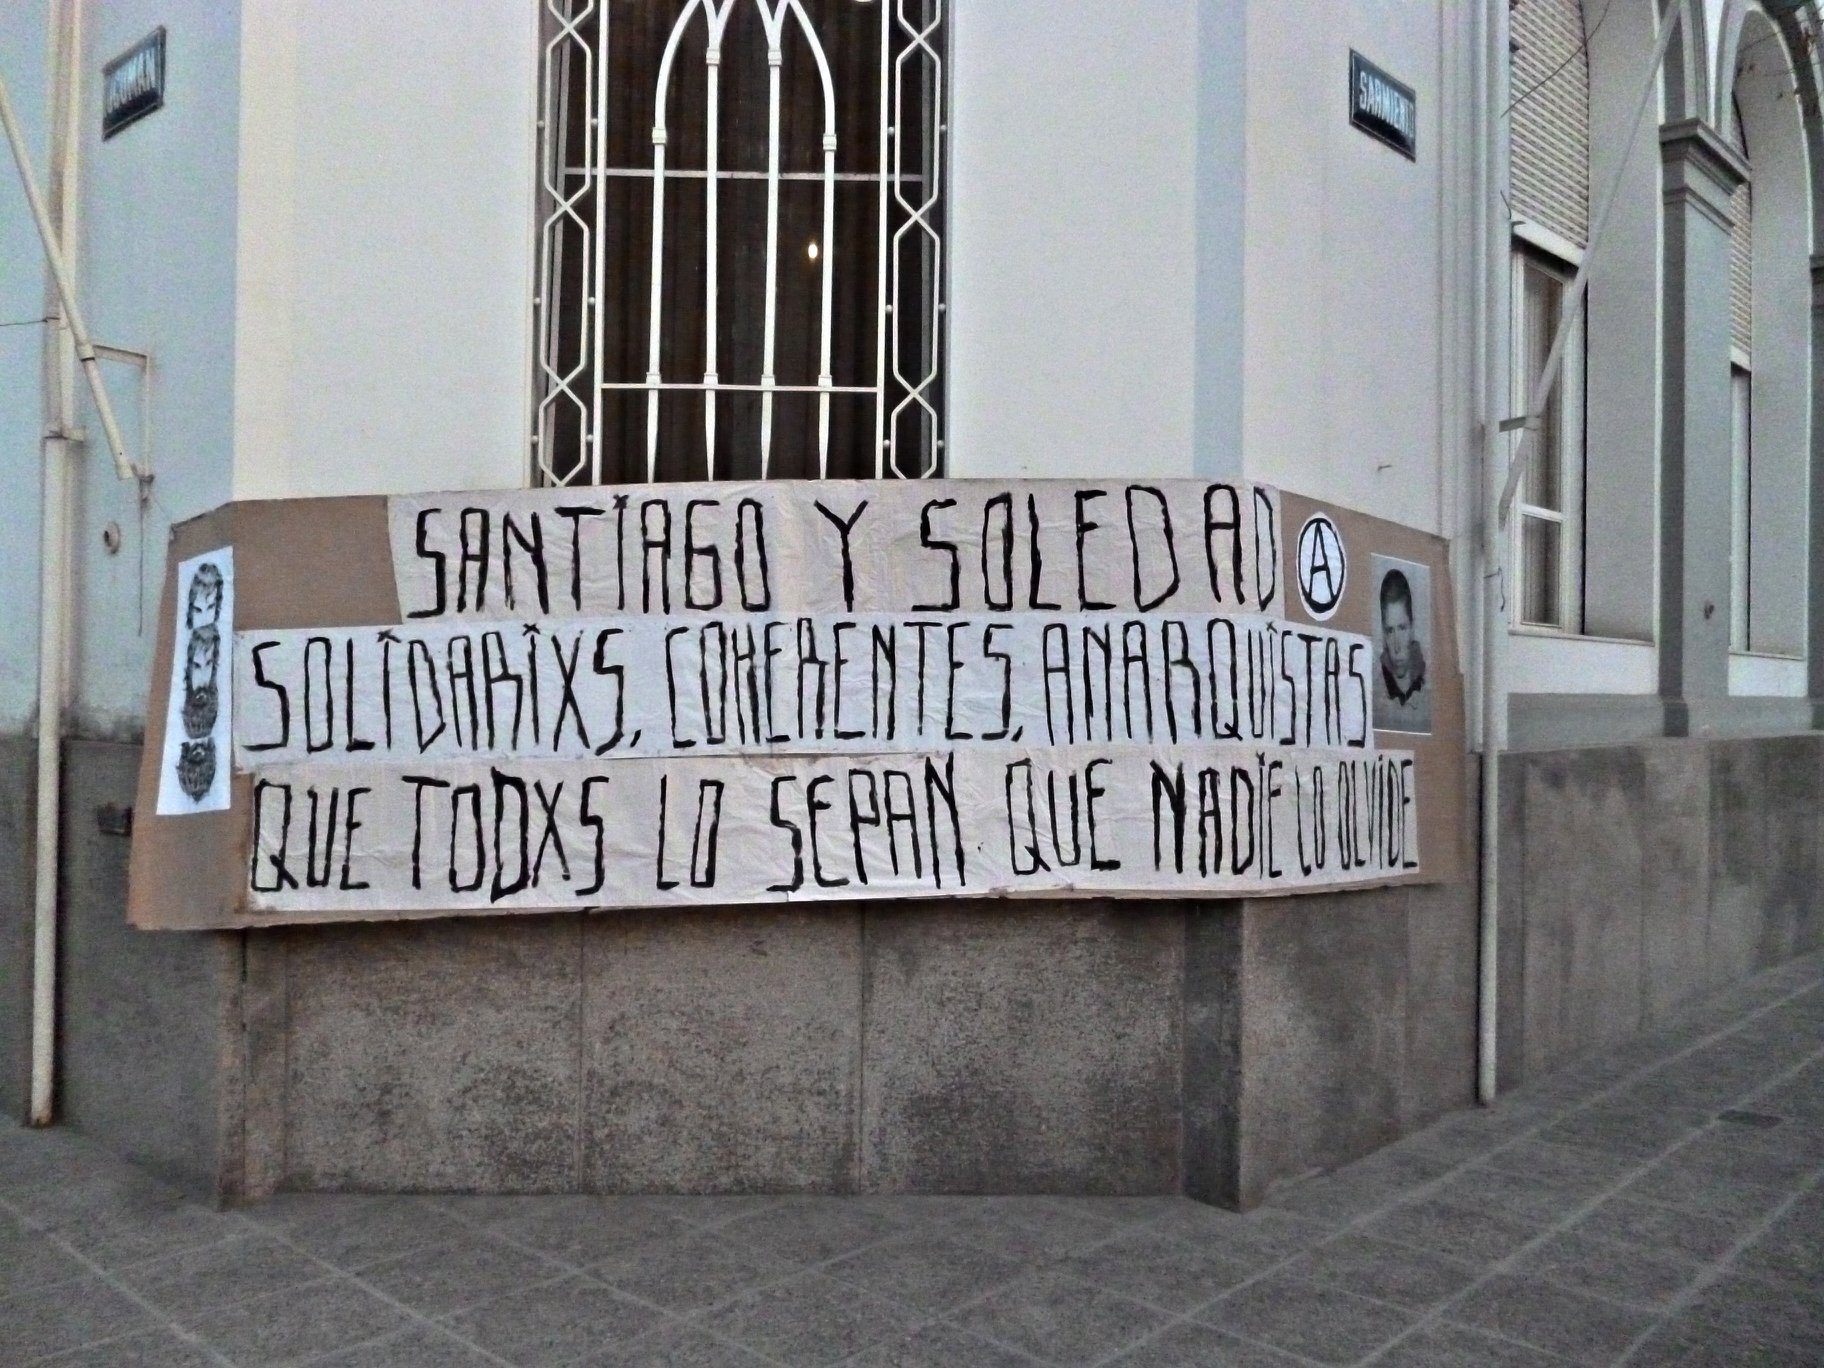 SARMIENTO
SANTIAGO Y SOLEDAD A
SOLIDARIXS, COHERENTES, ANARQUISTAS
QUE TODXS LO SEPAN QUE NADIE LO OLVIDE